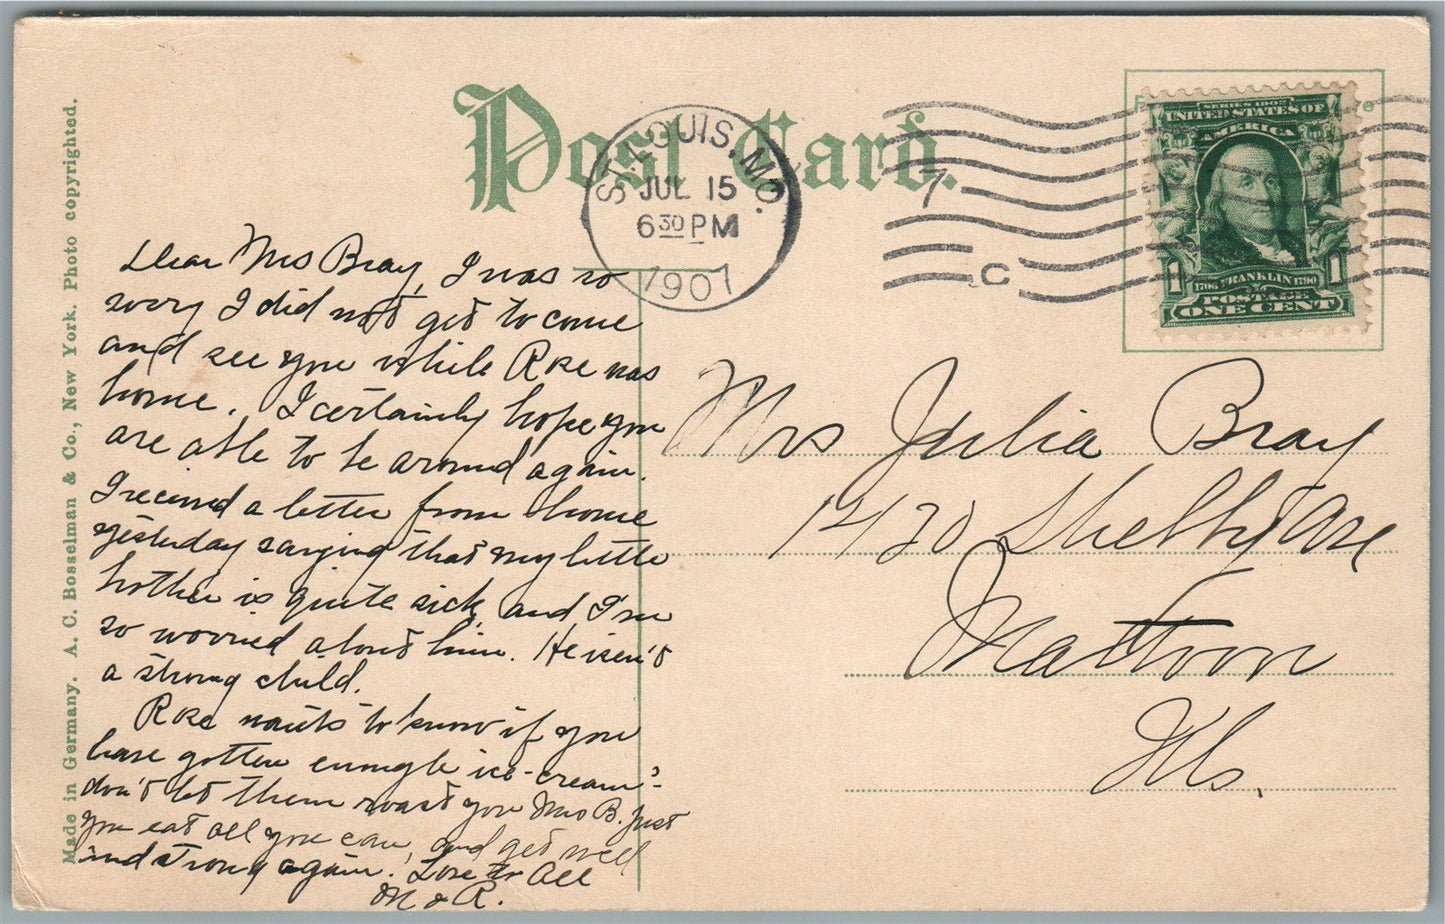 Post Card.
ST. LOUIS, MO.
JUL 15
6 30 PM
1907
7
C
SERIES 1902
UNITED STATES OF
AMERICA
1706 FRANKLIN 1790
POSTAGE
1 1
ONE CENT
Made in Germany. A. C. Bosselman & Co., New York. Photo copyrighted.
Dear Mrs Bray, I was so
sorry I did not get to come
and see you while Rose was
home. I certainly hope you
are able to be around again.
I received a letter from home
yesterday saying that my little
brother is quite sick, and I'm
so worried about him. He isen't
a strong child.
Rose wants to know if you
have gotten enough ice-cream?
don't let them roast you Mrs B. Just
you eat all you can, and get well
and strong again. Love to All
M & R.
Mrs Julia Bray
1420 Shelby Ave
Mattoon
Ills.